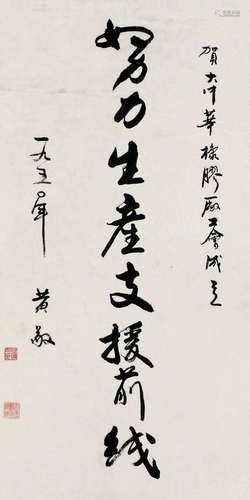 賀大中華橡膠廠工會成立
努力生產支援前线
一九五〇年
黄敬